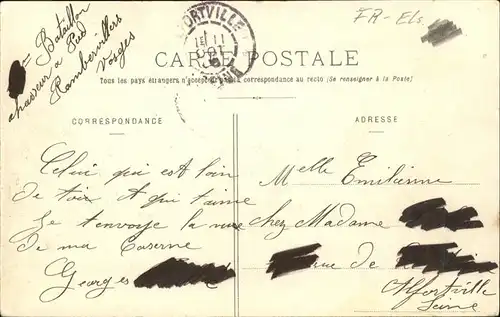 Bataillon
chasseur à Pied
Rambervillers
Vosges
FR-Els
CARTE POSTALE
Tous les pays étrangers n'acceptent pas la correspondance au recto (Se renseigner à la Poste)
CORRESPONDANCE
Celui qui est loin
de toi et qui t'aime
Je t'envoye la vue
de ma Caserne
Georges
ADRESSE
Melle Emilienne
chez Madame
rue de
Alfortville
Seine